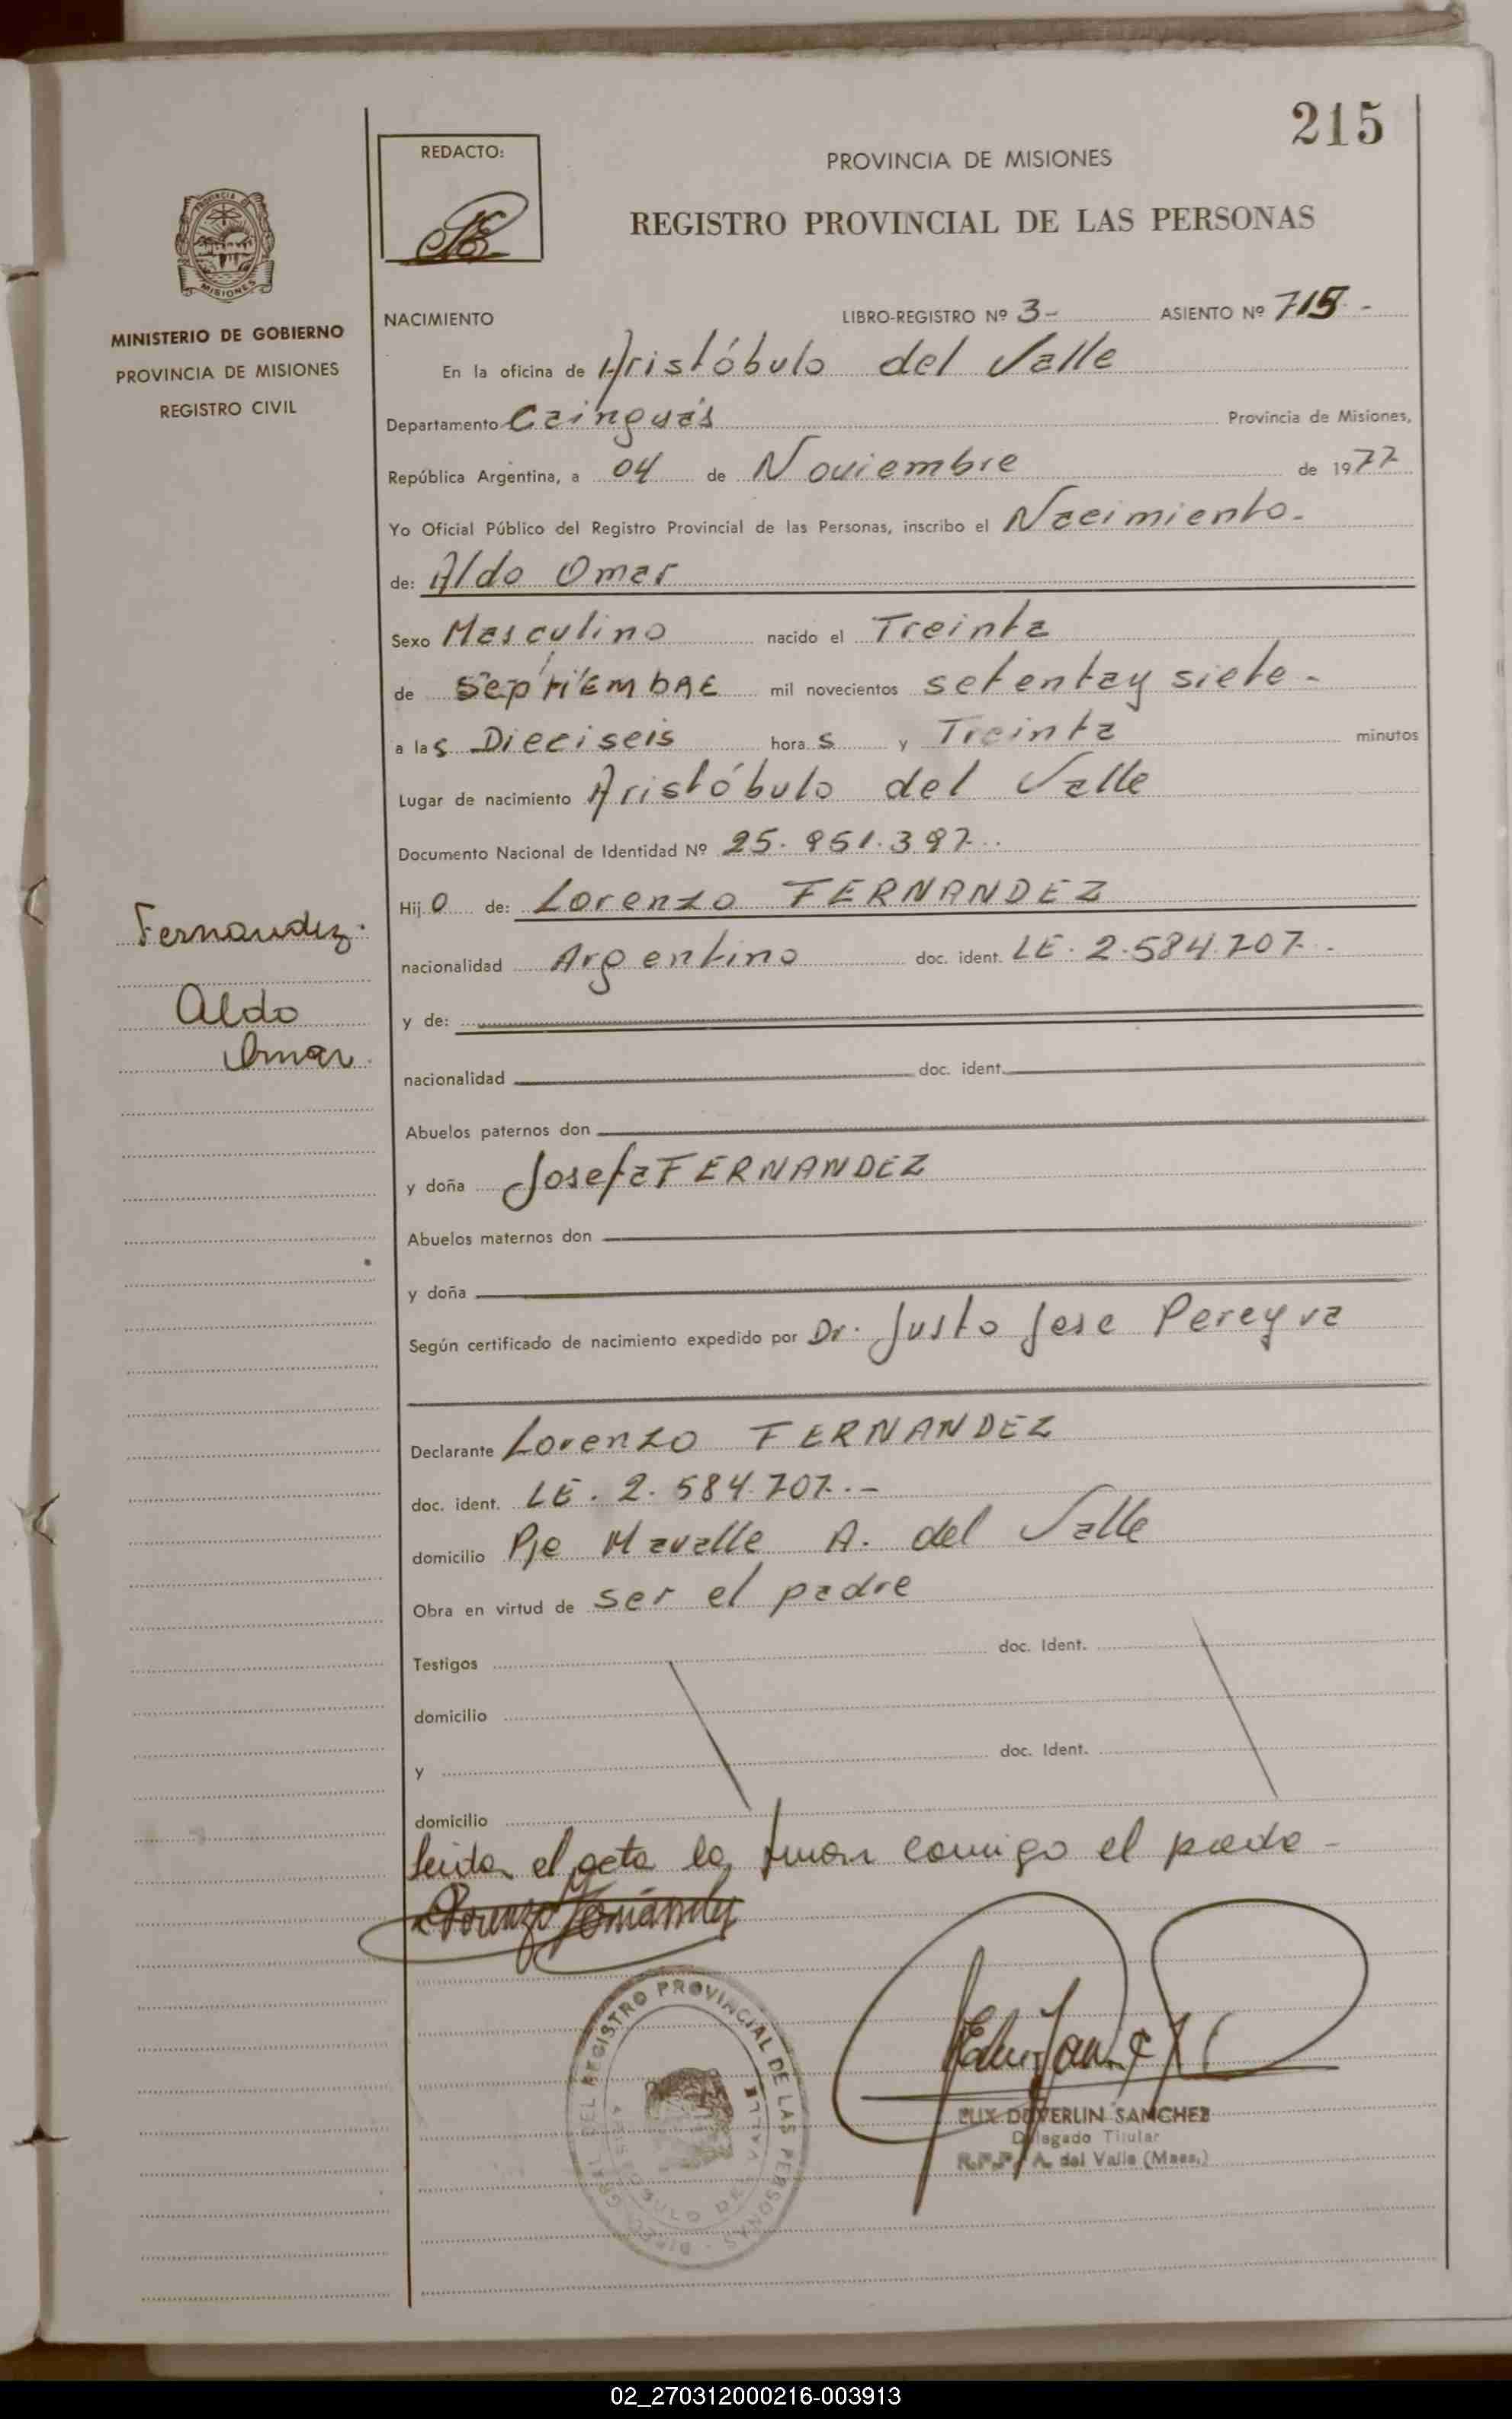 215
REDACTO:
PROVINCIA DE MISIONES
REGISTRO PROVINCIAL DE LAS PERSONAS
MISIONES
MINISTERIO DE GOBIERNO
PROVINCIA DE MISIONES
REGISTRO CIVIL
NACIMIENTO LIBRO-REGISTRO Nº 3- ASIENTO Nº 715 -
En la oficina de Aristóbulo del Valle
Departamento Cainguás Provincia de Misiones,
República Argentina, a 04 de Noviembre de 1977
Yo Oficial Público del Registro Provincial de las Personas, inscribo el Nacimiento.
de: Aldo Omar
Sexo Masculino nacido el Treinta
de SEPTIEMBRE mil novecientos setenta y siete -
a las Dieciseis horas y Treinta minutos
Lugar de nacimiento Aristóbulo del Valle
Documento Nacional de Identidad Nº 25.951.397.
Hijo de: Lorenzo FERNANDEZ
nacionalidad Argentino doc. ident. LE. 2.584.707.
y de:
nacionalidad doc. ident.
Abuelos paternos don
y doña Josefa FERNANDEZ
Abuelos maternos don
y doña
Según certificado de nacimiento expedido por Dr. Justo Jose Pereyra
Declarante Lorenzo FERNANDEZ
doc. ident. LE. 2.584.707.-
domicilio Pje Mavalle A. del Valle
Obra en virtud de ser el padre
Testigos doc. Ident.
domicilio
y doc. Ident.
domicilio
leida el acta la firman comigo el padre -
Lorenzo Fernández
Fernandez.
Aldo
Omar.
REGISTRO PROVINCIAL DE LAS PERSONAS
DEVERLIN SANCHEZ
Delegado Titular
A. del Valle (Mnes.)
02_270312000216-003913